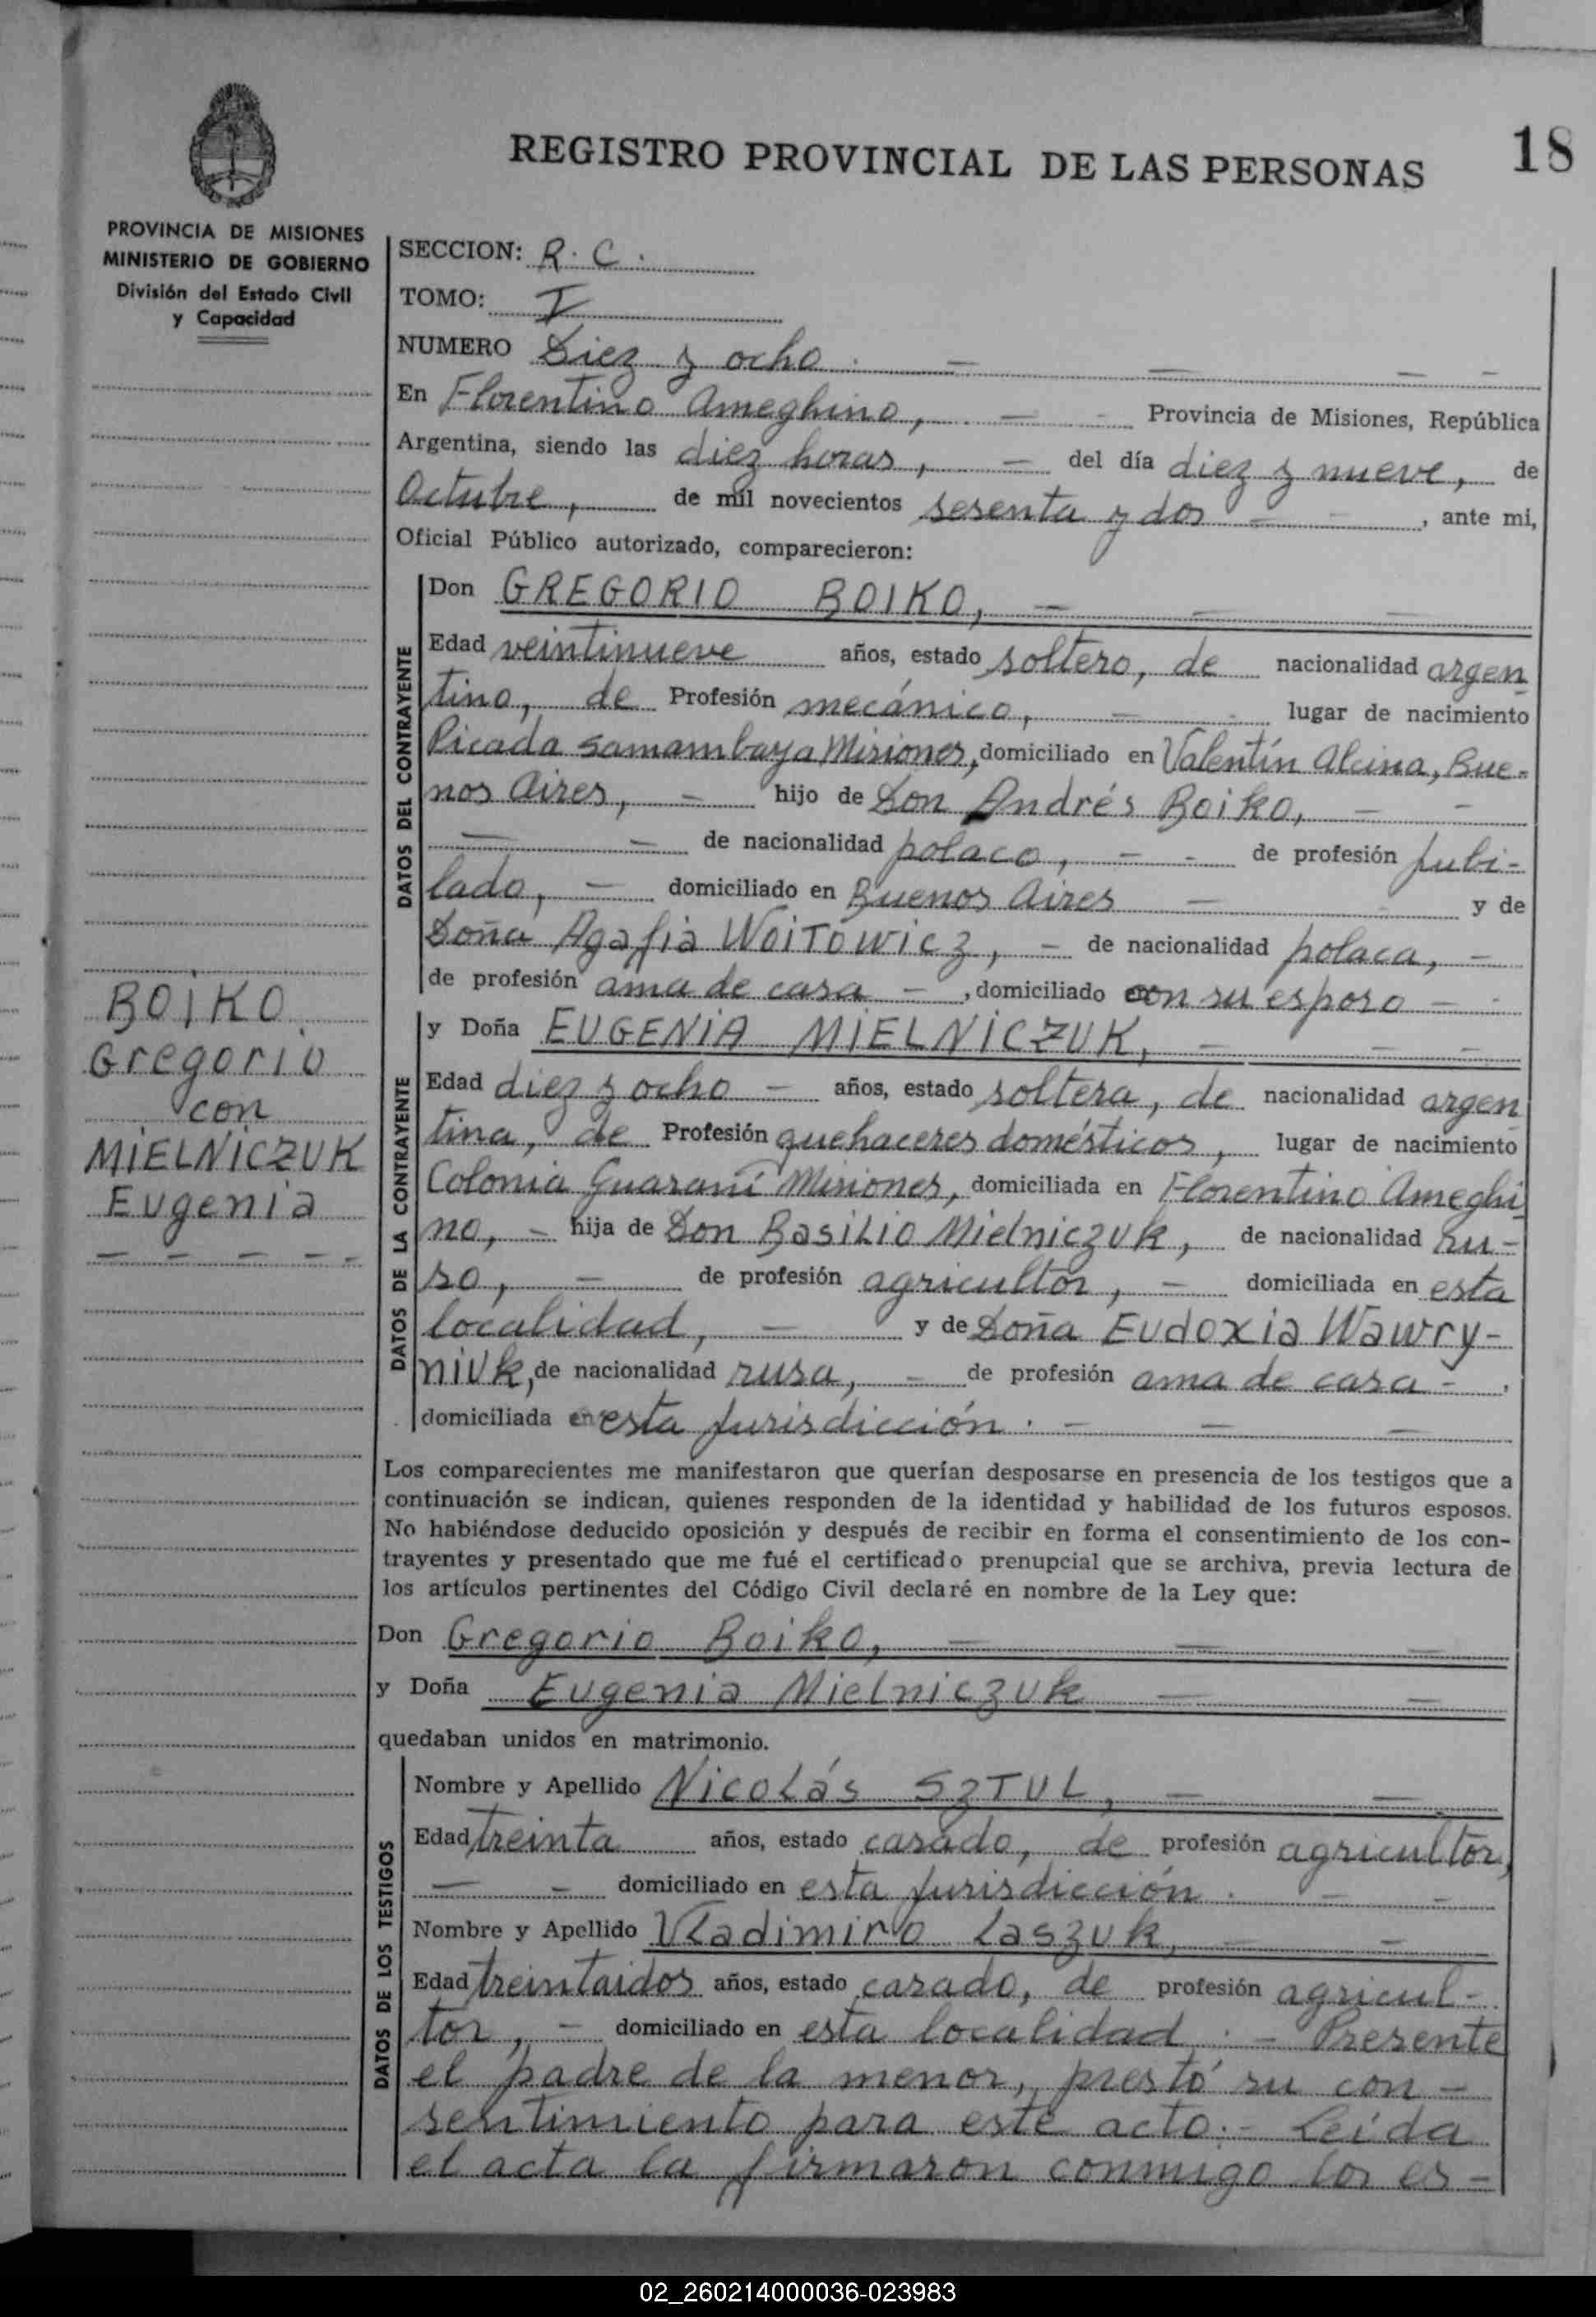 18
REGISTRO PROVINCIAL DE LAS PERSONAS
PROVINCIA DE MISIONES
MINISTERIO DE GOBIERNO
División del Estado Civil
y Capacidad
SECCION: R. C.
TOMO: I
NUMERO Diez y ocho. — — — -
En Florentino Ameghino, — - Provincia de Misiones, República
Argentina, siendo las diez horas, — del día diez y nueve, de
Octubre, de mil novecientos sesenta y dos — —, ante mi,
Oficial Público autorizado, comparecieron:
DATOS DEL CONTRAYENTE
Don GREGORIO BOIKO, — — —
Edad veintinueve años, estado soltero, de nacionalidad argen
tino, de Profesión mecánico, — - lugar de nacimiento
Picada Samambaya Misiones, domiciliado en Valentín Alcina, Bue-
nos Aires, — hijo de Don Andrés Boiko, — -
— — de nacionalidad polaco, — - de profesión jubi-
lado, — domiciliado en Buenos Aires — y de
Doña Agafia WOITOWICZ, — de nacionalidad polaca, —
de profesión ama de casa —, domiciliado con su esposo — -
DATOS DE LA CONTRAYENTE
y Doña EUGENIA MIELNICZUK, — — —
Edad diez y ocho — años, estado soltera, de nacionalidad argen
tina, de Profesión quehaceres domésticos, lugar de nacimiento
Colonia Guaraní Misiones, domiciliada en Florentino Ameghi
no, — hija de Don Basilio Mielniczuk, de nacionalidad ru-
so, — de profesión agricultor, — domiciliada en esta
localidad, — y de Doña Eudoxia Wawry-
niuk, de nacionalidad rusa, — de profesión ama de casa -.
domiciliada en esta jurisdicción. — — —
BOIKO
Gregorio
con
MIELNICZUK
Eugenia
— — — — -
Los comparecientes me manifestaron que querían desposarse en presencia de los testigos que a
continuación se indican, quienes responden de la identidad y habilidad de los futuros esposos.
No habiéndose deducido oposición y después de recibir en forma el consentimiento de los con-
trayentes y presentado que me fué el certificado prenupcial que se archiva, previa lectura de
los artículos pertinentes del Código Civil declaré en nombre de la Ley que:
Don Gregorio Boiko, — — —
y Doña Eugenia Mielniczuk — —
quedaban unidos en matrimonio.
DATOS DE LOS TESTIGOS
Nombre y Apellido Nicolás SZTUL, — —
Edad treinta años, estado casado, de profesión agricultor,
— - domiciliado en esta jurisdicción. — -
Nombre y Apellido Vladimiro Laszuk, — —
Edad treintaidos años, estado casado, de profesión agricul-
tor, — domiciliado en esta localidad. — Presente
el padre de la menor, prestó su con-
sentimiento para este acto.- Leída
el acta la firmaron conmigo los es-
02_260214000036-023983